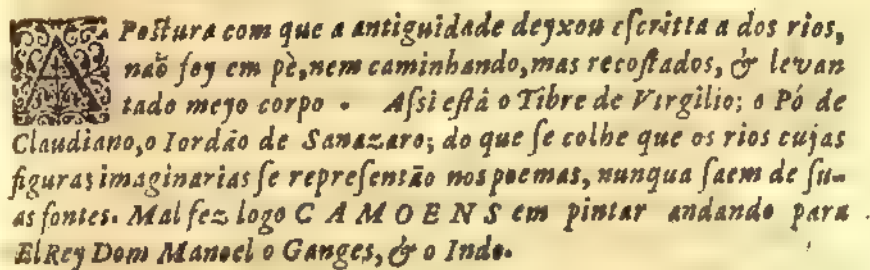 A Postura com que a antiguidade deyxou escritta a dos rios,
naõ foy em pè, nem caminhando, mas recostados, & levan
tado meyo corpo. Assi està o Tibre de Virgilio; o Pó de
Claudiano, o Iordão de Sanazaro; do que se colhe que os rios cujas
figuras imaginarias se represensão nos poemas, nunqua saem de su-
as fontes. Mal fez logo CAMOENS em pintar andando para
ElRey Dom Manoel o Ganges, & o Indo.